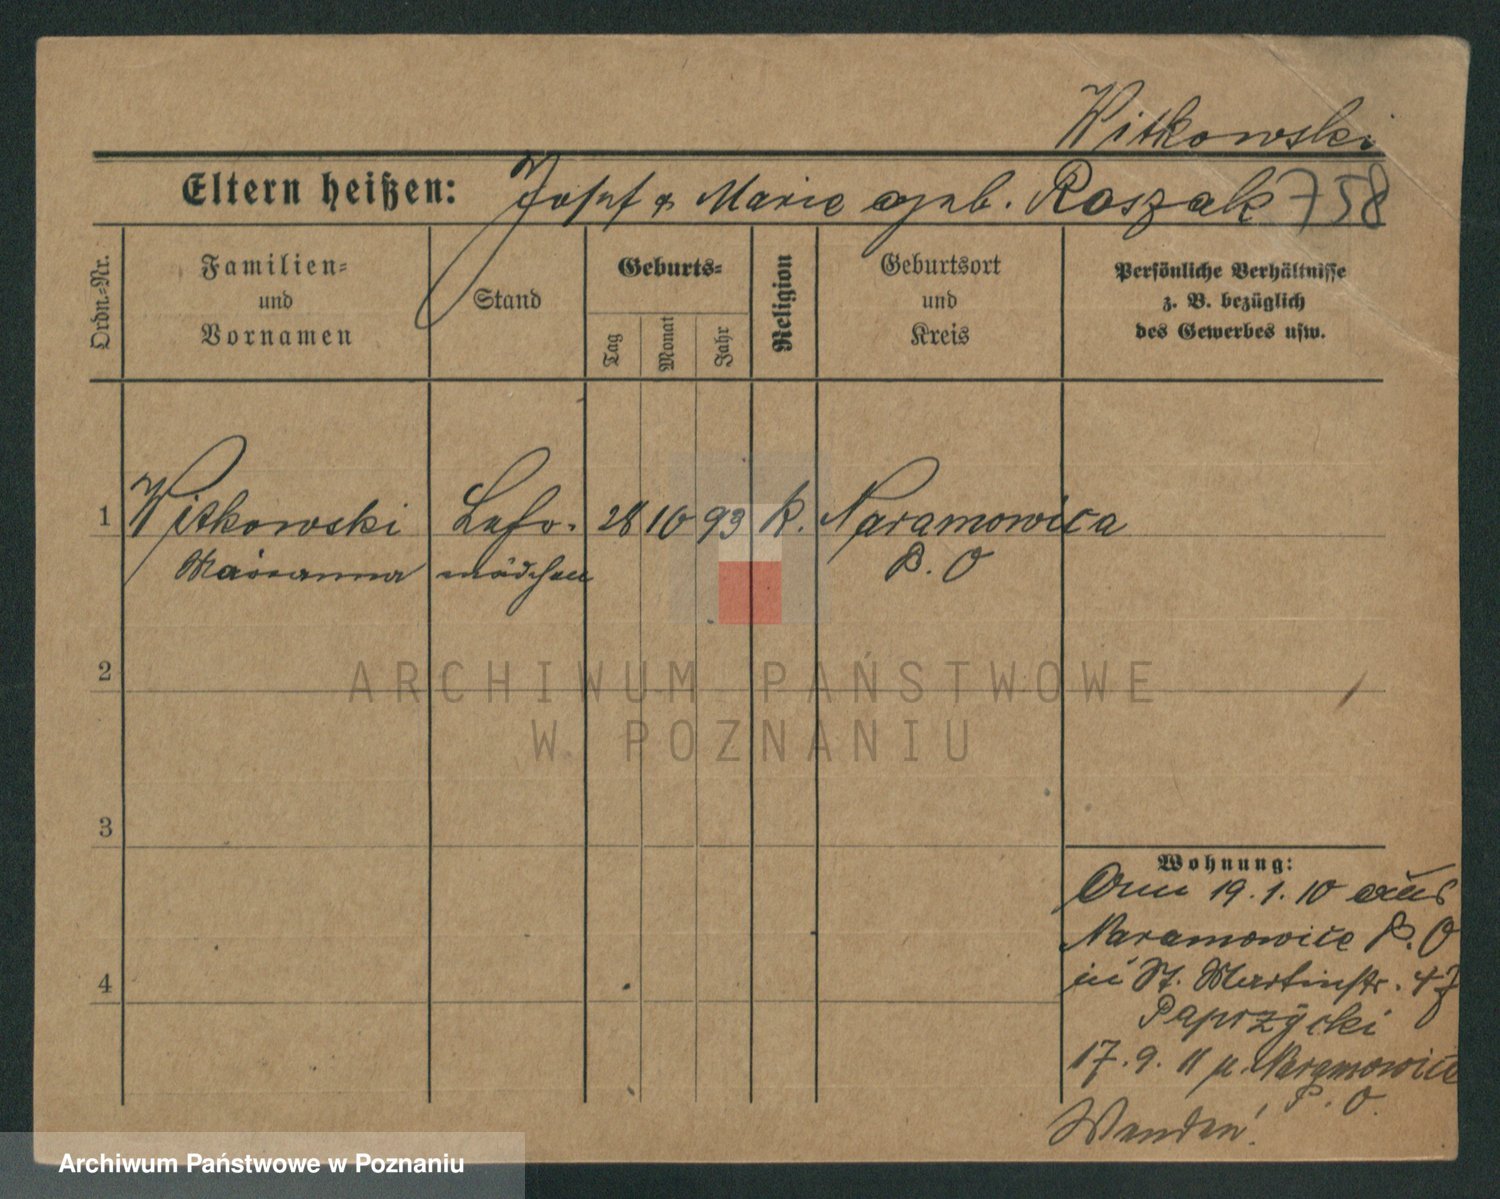 Witkowski
Eltern heißen: Josef & Marie geb. Roszak 758
Ordn.-Nr.
Familien- und Vornamen
Stand
Geburts-
Tag
Monat
Jahr
Religion
Geburtsort und Kreis
Persönliche Verhältnisse
z. B. bezüglich
des Gewerbes usw.
1 Witkowski Lehr- 28 10 93 k. Naramowica
Marianna mädchen P. O
2
3
4
Wohnung:
19.1.10 aus
Naramowice P. O
in St. Martinstr. 47
Paprzycki
17.9.11 n. Naramowice
P. O.
Wenden!
ARCHIWUM PAŃSTWOWE
W POZNANIU
Archiwum Państwowe w Poznaniu